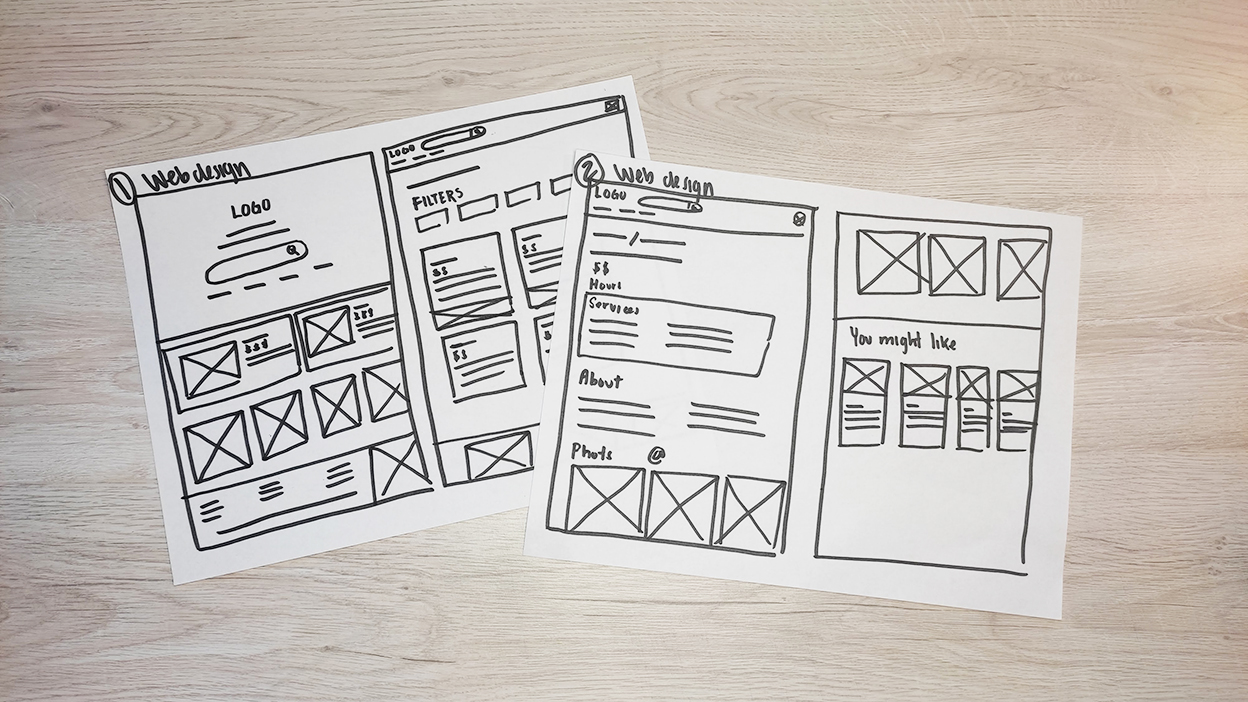 1 Web design
LOGO
$$$
$$$
LOGO
FILTERS
$$
$$
$$
2 Web design
LOGO
$$
Hours
Services
About
Phots @
You might like